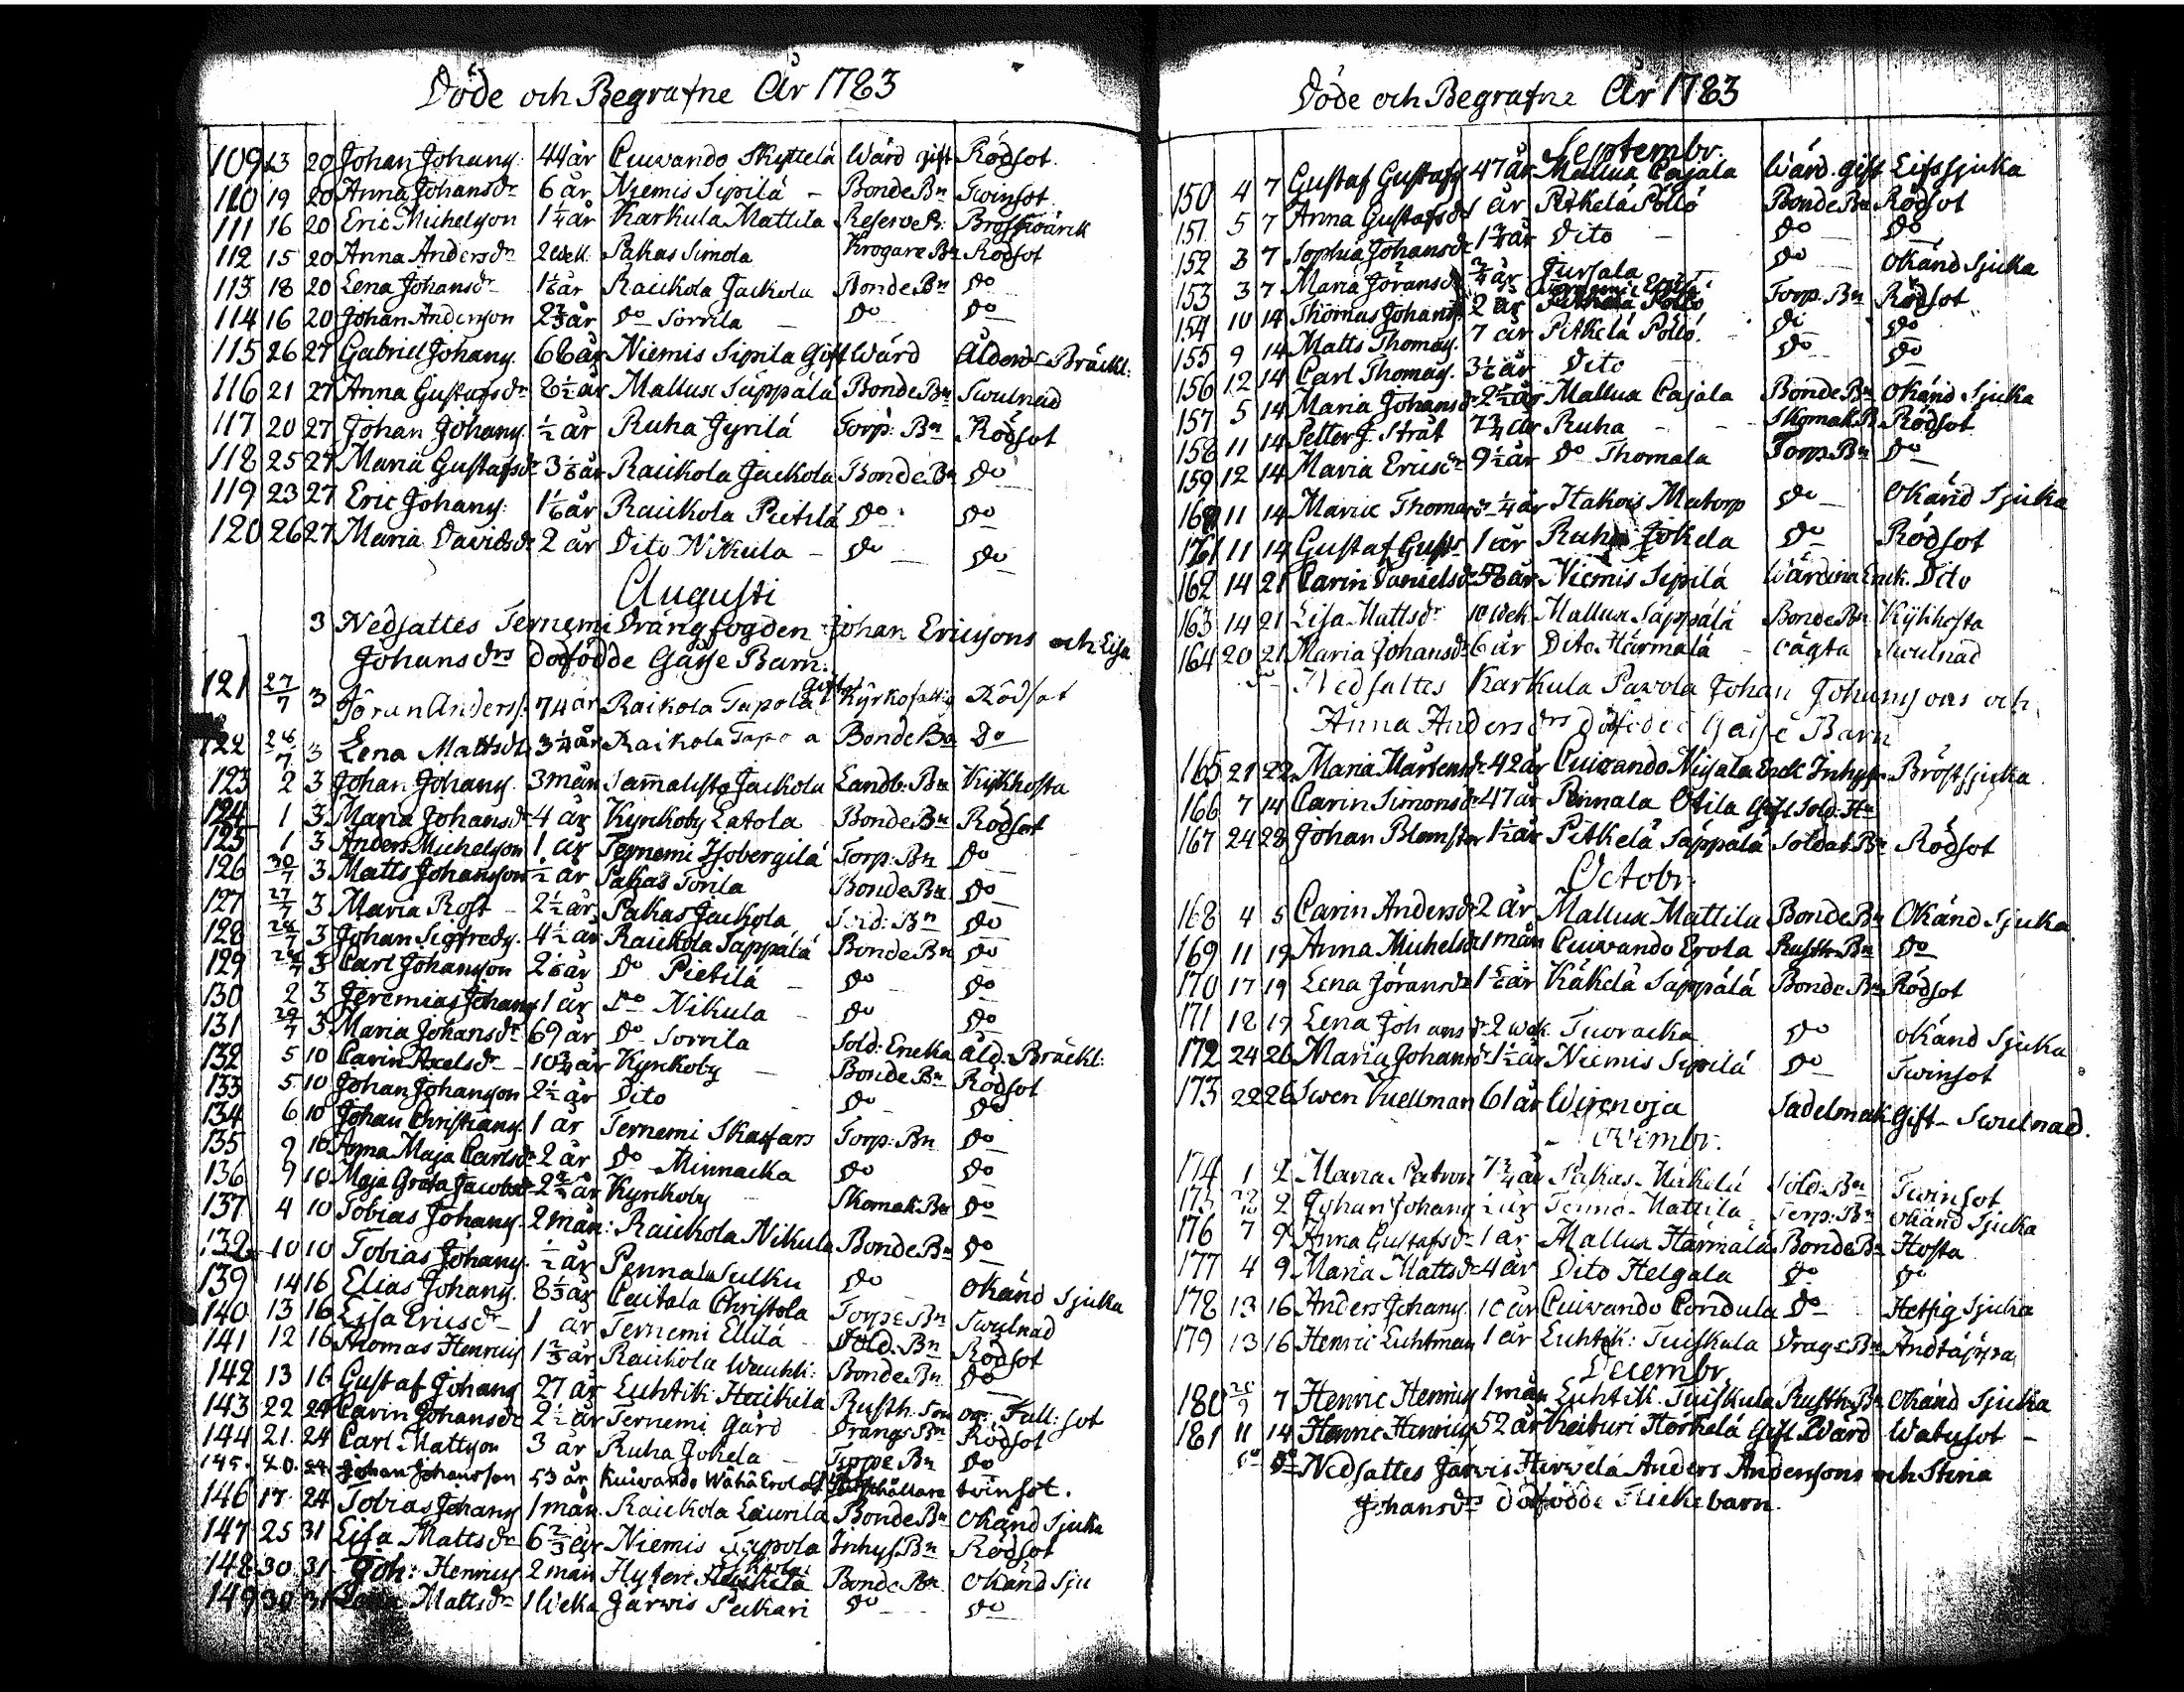 Döde och Begrafne År 1783
109 13 20 Johan Johans: 44 år Cuivando Skyttelä Wärd gift Rödsot
110 19 20 Anna Johansdr 6 år Niemis Sipilä - BondeBn Twinsot
111 16 20 Eric Michelson 1 1/4 år Karkula Mattila Reserve K:
112 15 20 Anna Andersdr 2 wek. Pakas Simola Krogare Bn Rödsot
113 18 20 Lena Johansdr år Raukola Jackola Bonde Bn Do
114 16 20 Johan Anderson år Do Sorrila - Do Do
115 26 27 Gabriel Johans. 66 år Niemis Sipila Gift Wärd Ålderd: Bräckl:
116 21 27 Anna Gustafsdr år Mallux Säppälä BondeBn Swulnad
117 20 27 Johan Johans. 1/2 år Ruha Jyrilä Torp: Bn Rödsot
118 25 27 Maria Gustafsdr år Raukola Jackola Bonde Bn Do
119 23 27 Eric Johans: år Raukola Pietilä Do Do
120 26 27 Maria Davidsdr 2 år Dito Nikula - Do Do
Augusti
3 Nedsattes Ternemi Drängfogden Johan Ericsons och Lisa
Johansdrs dödfödde Gåsse Barn.
121 27/7 3 Jöran Anderss: 74 år Raikola Tapola gift Kyrkofattig Rödsot
122 28/7 3 Lena Mattsdr 3 1/4 år Raikola Bonde Bn Do
123 2 3 Johan Johans. 3 mån Jackola Landb: Bn Kikhosta
124 1 3 Maria Johansdr 4 år Kyrckoby Latola Bonde Bn Rödsot
125 1 3 Anders Michelson 1 år Ternemi Torp: Bn Do
126 30/7 3 Matts Johansson 1/2 år Pakas Torila Bonde Bn Do
127 27/7 3 Maria Rost - 2 1/2 år Pakas Jackola Bn Do
128 28/7 3 Johan Sigfreds. 4 1/2 år Raukola Säppälä Bonde Bn Do
129 3 Carl Johanson år Do Pietilä - Do Do
130 2 3 Jeremias Johans 1 år Do Nikula - Do Do
131 29/7 3 Maria Johansdr 69 år Do Sorrila Sold: Encka åld: Bräckl:
132 5 10 Carin Axelsdr - 10 3/4 år Kyrckoby - Bonde Bn Rödsot
133 5 10 Johan Johanson 2 1/2 år Dito - Do Do
134 6 10 Johan Christians. 1 år Ternemi Skaffars Torp: Bn Do
135 9 10 Anna Maja Carlsdr 2 år Do Minnacka Do Do
136 9 10 Maja Greta Jacobsdr år Kyrckoby Skomak: Bn Do
137 4 10 Tobias Johans. 2 mån: Raukola Nikula Bonde Bn Do
138 10 10 Tobias Johans. 1/2 år Pennala Sulku Do
139 14 16 Elias Johans. 8 1/3 år Cuitala Christola Torpe Bn Okänd Sjuka
140 13 16 Lisa Ericsdr 1 år Ternemi Ellilä Sold: Bn Swulnad
141 12 16 Thomas Henrics 1 2/3 år Raukola Bonde Bn Rödsot
142 13 16 Gustaf Johans 27 år Luhtik: Heickilä Rusth: Son Do
143 22 24 Carin Johansdr 2 1/2 år Ternemi Gård Drängs Bn Rödsot
144 21 24 Carl Mattson 3 år Ruha Jokela - Torpe Bn Do
145 20 24 Johan Johansson 53 år Kuivando Wähä Erola twinsot.
146 17 24 Tobias Johans 1 mån Raukola Laurila Bonde Bn Okänd Sjuka
147 25 31 Lisa Mattsdr 6 2/3 år Niemis Tapola Inhys Bn Rödsot
148 30 31 Joh: Henrics 2 mån Bonde Bn Okänd Sju
149 30 31 Lena Mattsdr 1 Weka Järwis Peckari Do Do
Döde och Begrafne År 1783
Septembr.
150 4 7 Gustaf Gustafs 47 år Mallux Cajala Wärd. gift Lifssjuka
151 5 7 Anna Gustafsdr år Pitkelä Pöllö Bonde Bn Rödsot
152 3 7 Sophia Johansdr år Dito - Do Do
153 3 7 Maria Jöransdr år Jursala Do Okänd Sjuka
154 10 14 Thomas Johans 2 år Torp. Bn Rödsot
155 9 14 Matts Thomas. 7 år Pitkelä Pöllö. - Do Do
156 12 14 Carl Thomas. år Dito - Do Do
157 5 14 Maria Johansdr 2 1/2 år Mallux Cajala Bonde Bn Okänd Sjuka
158 11 14 Petter J. Strät 7 3/4 år Ruha - - Skomak B Rödsot
159 12 14 Maria Ericsdr 9 1/2 år Do Thomala Torp. Bn Do
160 11 14 Maria Thomasdr 1/4 år Itakois Matorp Do Okänd Sjuka
161 11 14 Gustaf Gusts 1 år Ruha Jokela Do Rödsot
162 14 21 Carin Danielsdr 58 år Niemis Sipilä Wärdina Enck. Dito
163 14 21 Lisa Mattsdr 10 Wek Mallux Säppälä Bonde Bn Kikhosta
164 20 21 Maria Johansdr 6 år Dito Härmälä - Swulnad
Do Nedsattes Karkula Pavola Johan Johansons och
Anna Andersdrs dödfödde Gåsse Barn
165 21 22 Maria Mårtensdr 42 år Cuivando Enck Inhys Bröstsjuka
166 7 14 Carin Simonsdr 47 år Pennala Otila Gift Sold: Hu
167 24 28 Johan Blomster 1 1/2 år Pitkelä Säppälä Soldat Bn Rödsot
Octobr.
168 4 5 Carin Andersdr 2 år Mallux Mattila Bonde Bn Okänd Sjuka
169 11 19 Anna Michelsdr 1 mån Cuivando Erola Rusth. Bn Do
170 17 19 Lena Jöransdr år Käkelä Säppälä Bonde Bn Rödsot
171 12 19 Lena Johansdr 2 wek. Tuoracka Do Okänd Sjuka
172 24 26 Maria Johansdr 1 1/2 år Niemis Sipilä Do Twinsot
173 22 26 Swen Kuellman 61 år Wirenoja Sadelmak Gift - Swulnad.
ovembr.
174 1 2 Maria Patron 7 3/4 år Pakas Mäkelä Sold. Bn Twinsot
175 2 Johan Johans år Mattila Torp: Bn Okänd Sjuka
176 7 9 Anna Gustafsdr 1 år Mallux Härmälä Bonde Bn Hosta
177 4 9 Maria Mattsdr 4 år Dito Helgala Do Do
178 13 16 Anders Johans 10 år Cuivando Condula Do Hetsig Sjuka
179 13 16 Henric Luhtman 1 år Luhtik: Tuiskula Drag: Bn
Decembr
180 7 Henric Henrics 1 mån Luhtik. Tuiskula Rusth. Bn Okänd Sjuka
181 11 14 Henric Henrics 52 år Keituri Hörkelä Gift Wärd Watusot -
Do Do Nedsattes Järwis Hirvelä Anders Andersons och Stina
Johansdrs dödfödde Flickebarn.